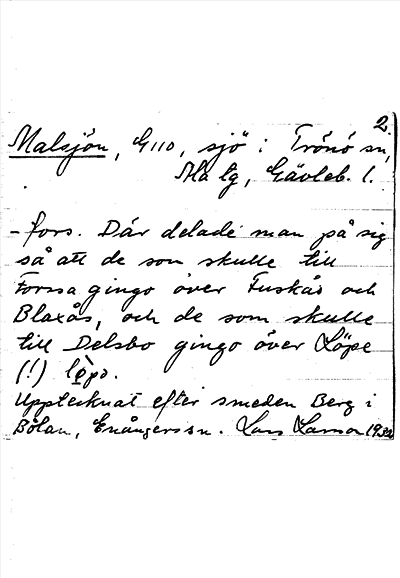 2.
Malsjön, G110, sjö i Trönö sn,
Ala tg, Gävleb. l.
-fors. Där delade man på sig
så att de som skulle till
Forssa gingo över Fuskås och
Blaxås, och de som skulle
till Delsbo gingo över Löpe
(!) lø̀pə.
Upptecknat efter smeden Berg i
Bölan, Enångerssn. Lars Larsson 1932